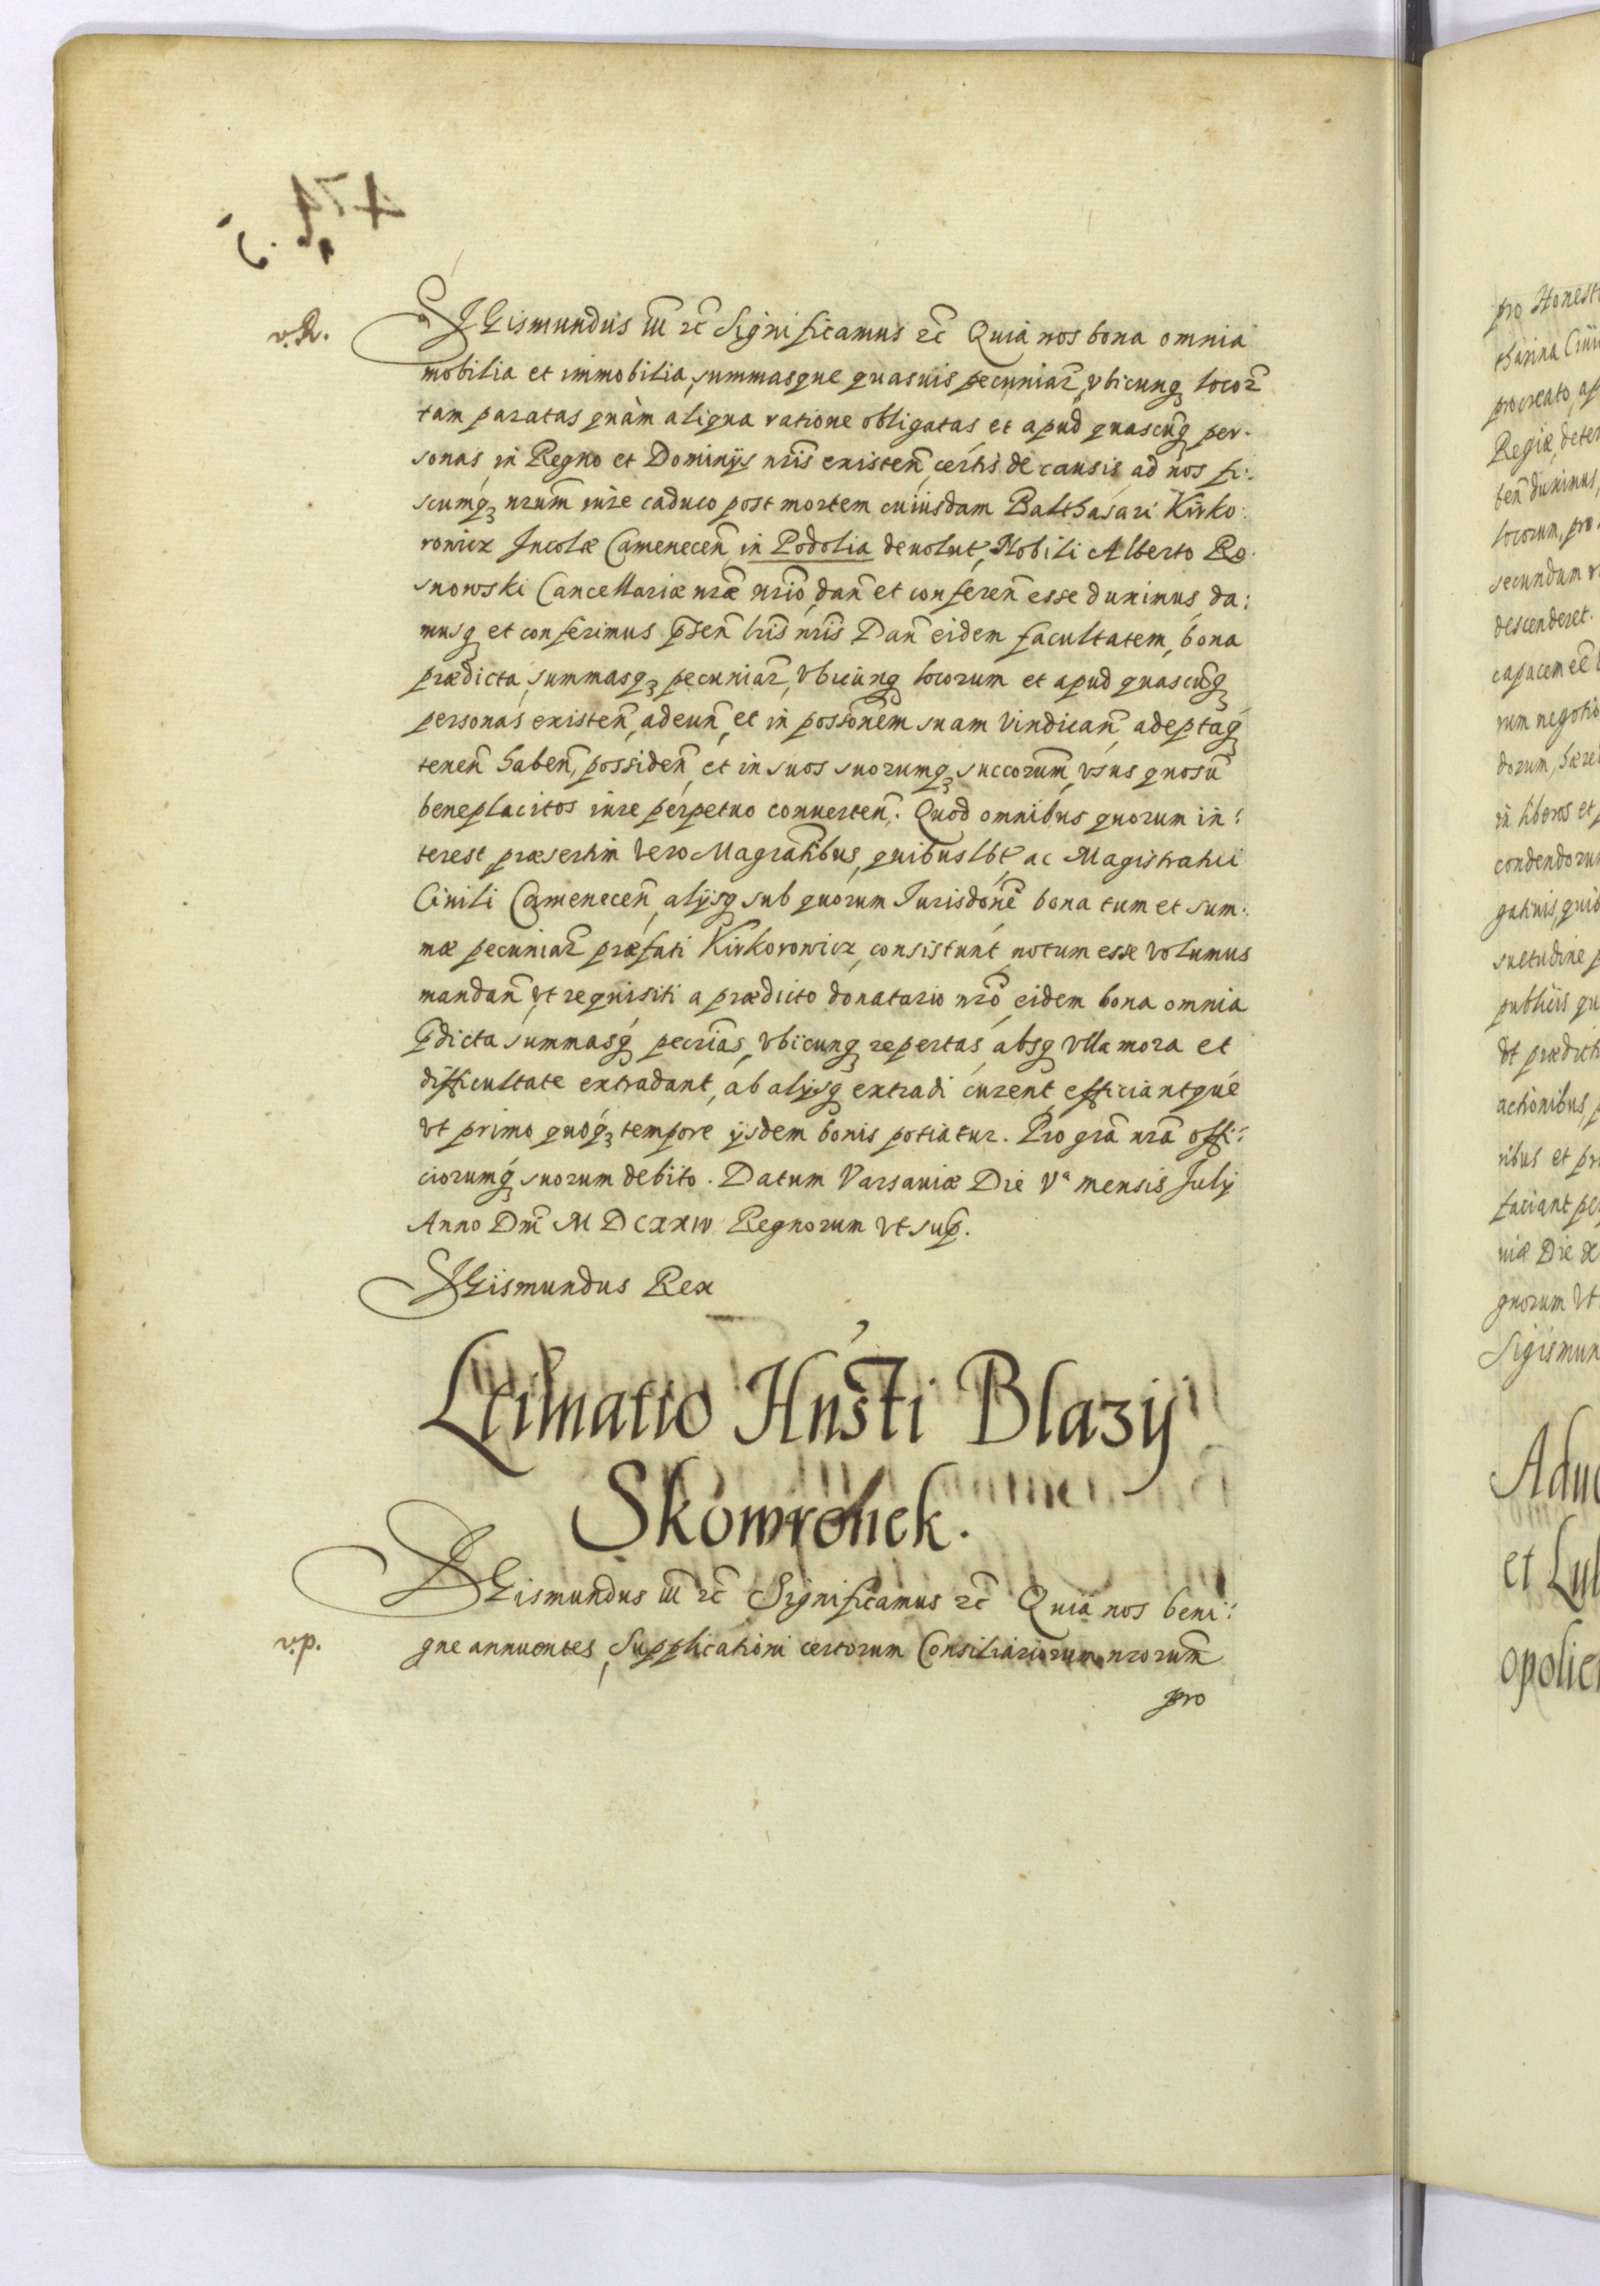 v.R.
SIGismundus iii etc Significamus etc Quia nos bona omnia
mobilia et immobilia, summasque quasuis pecuniar̃, vbicunq₃ locor̃
tam paratas quàm aliqua ratione obligatas et apud quascũq₃ per-
sonas in Regno et Dominijs nr̃is existeñ, certis de causis ad nos fi:
scumq₃ nrũm iure caduco post mortem cuiusdam Balthasari Kirko
rowicz Incolæ Camenecen̄ in Podolia deuolut̃, Nobili Alberto Ro-
snowski Cancellariæ nr̃æ nr̃io dan̄ et conferen̄ esse duximus, da:
musq₃ et conferimus p̃sen̄ lr̃is nr̃is Dan̄ eidem facultatem, bona
prædicta, summasq₃ pecuniar̃, vbicunq₃ locorum et apud quascũq₃
personas existen̄, adeun̄, et in possõnem suam vindican̄ adeptaq₃
tenen̄ haben̄, possiden̄ et in suos suorumq₃ succorũm vsus quosũ
beneplacitos iure perpetuo conuerten̄. Quod omnibus quorum in:
terest præsertim vero Magrãtibus, quibuslbt̃ ac Magistratui
Ciuili Camenecen̄, alijsq₃ sub quorum Jurisdõne bona tum et sum-
mæ pecuniar̃ præfati Kirkorowicz, consistunt, notum esse volumus
mandan̄ vt requisiti a prædicto donatario nr̃o, eidem bona omnia
p̃dicta summasq₃ pecr̃ias, vbicunq₃ repertas, absq₃ vlla mora et
difficultate extradant, ab alijsq₃ extradi curent, efficiantque
vt primo quoq₃ tempore ijsdem bonis potiatur. Pro gr̃a nr̃a offi:
ciorumq₃ suorum debito. Datum Varsauiæ Die Vᵃ mensis July
Anno Dn̄i MDCXXIV Regnorum vt sup̃.
SIGismundus Rex
Ltimatio Hnsti Blazij
Skowronek.
SIGismundus iii etc Significamus etc Quia nos beni:
v.p.
gne annuentes, Supplicationi certorum Consiliariorum nrorum̃
pro
pro Honest
tharina Ciui
procreato, ap
Regiæ, deter
ten̄ duximus,
locorum, pro
secundum
descenderet.
capacem eẽ
rum negotio
dorum, hæred
in liberos et p
condendorum
gatiuis, quib
suetudine p
publicis qu
vt prædict
actionibus, p
ribus et pr
faciant pe
uiæ Die
gnorum vt
Sigismun
Aduo
et Lub
opolie